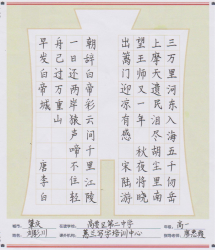 三万里河东入海五千仞岳
上摩天遗民泪尽胡尘里南
望王师又一年 秋夜将晓
出篱门迎凉有感 宋陆游
朝辞白帝彩云间千里江陵
一日还两岸猿声啼不住轻
舟已过万重山
早发白帝城 唐李白
肇庆 高要区第二中学 高一
写字培训中心